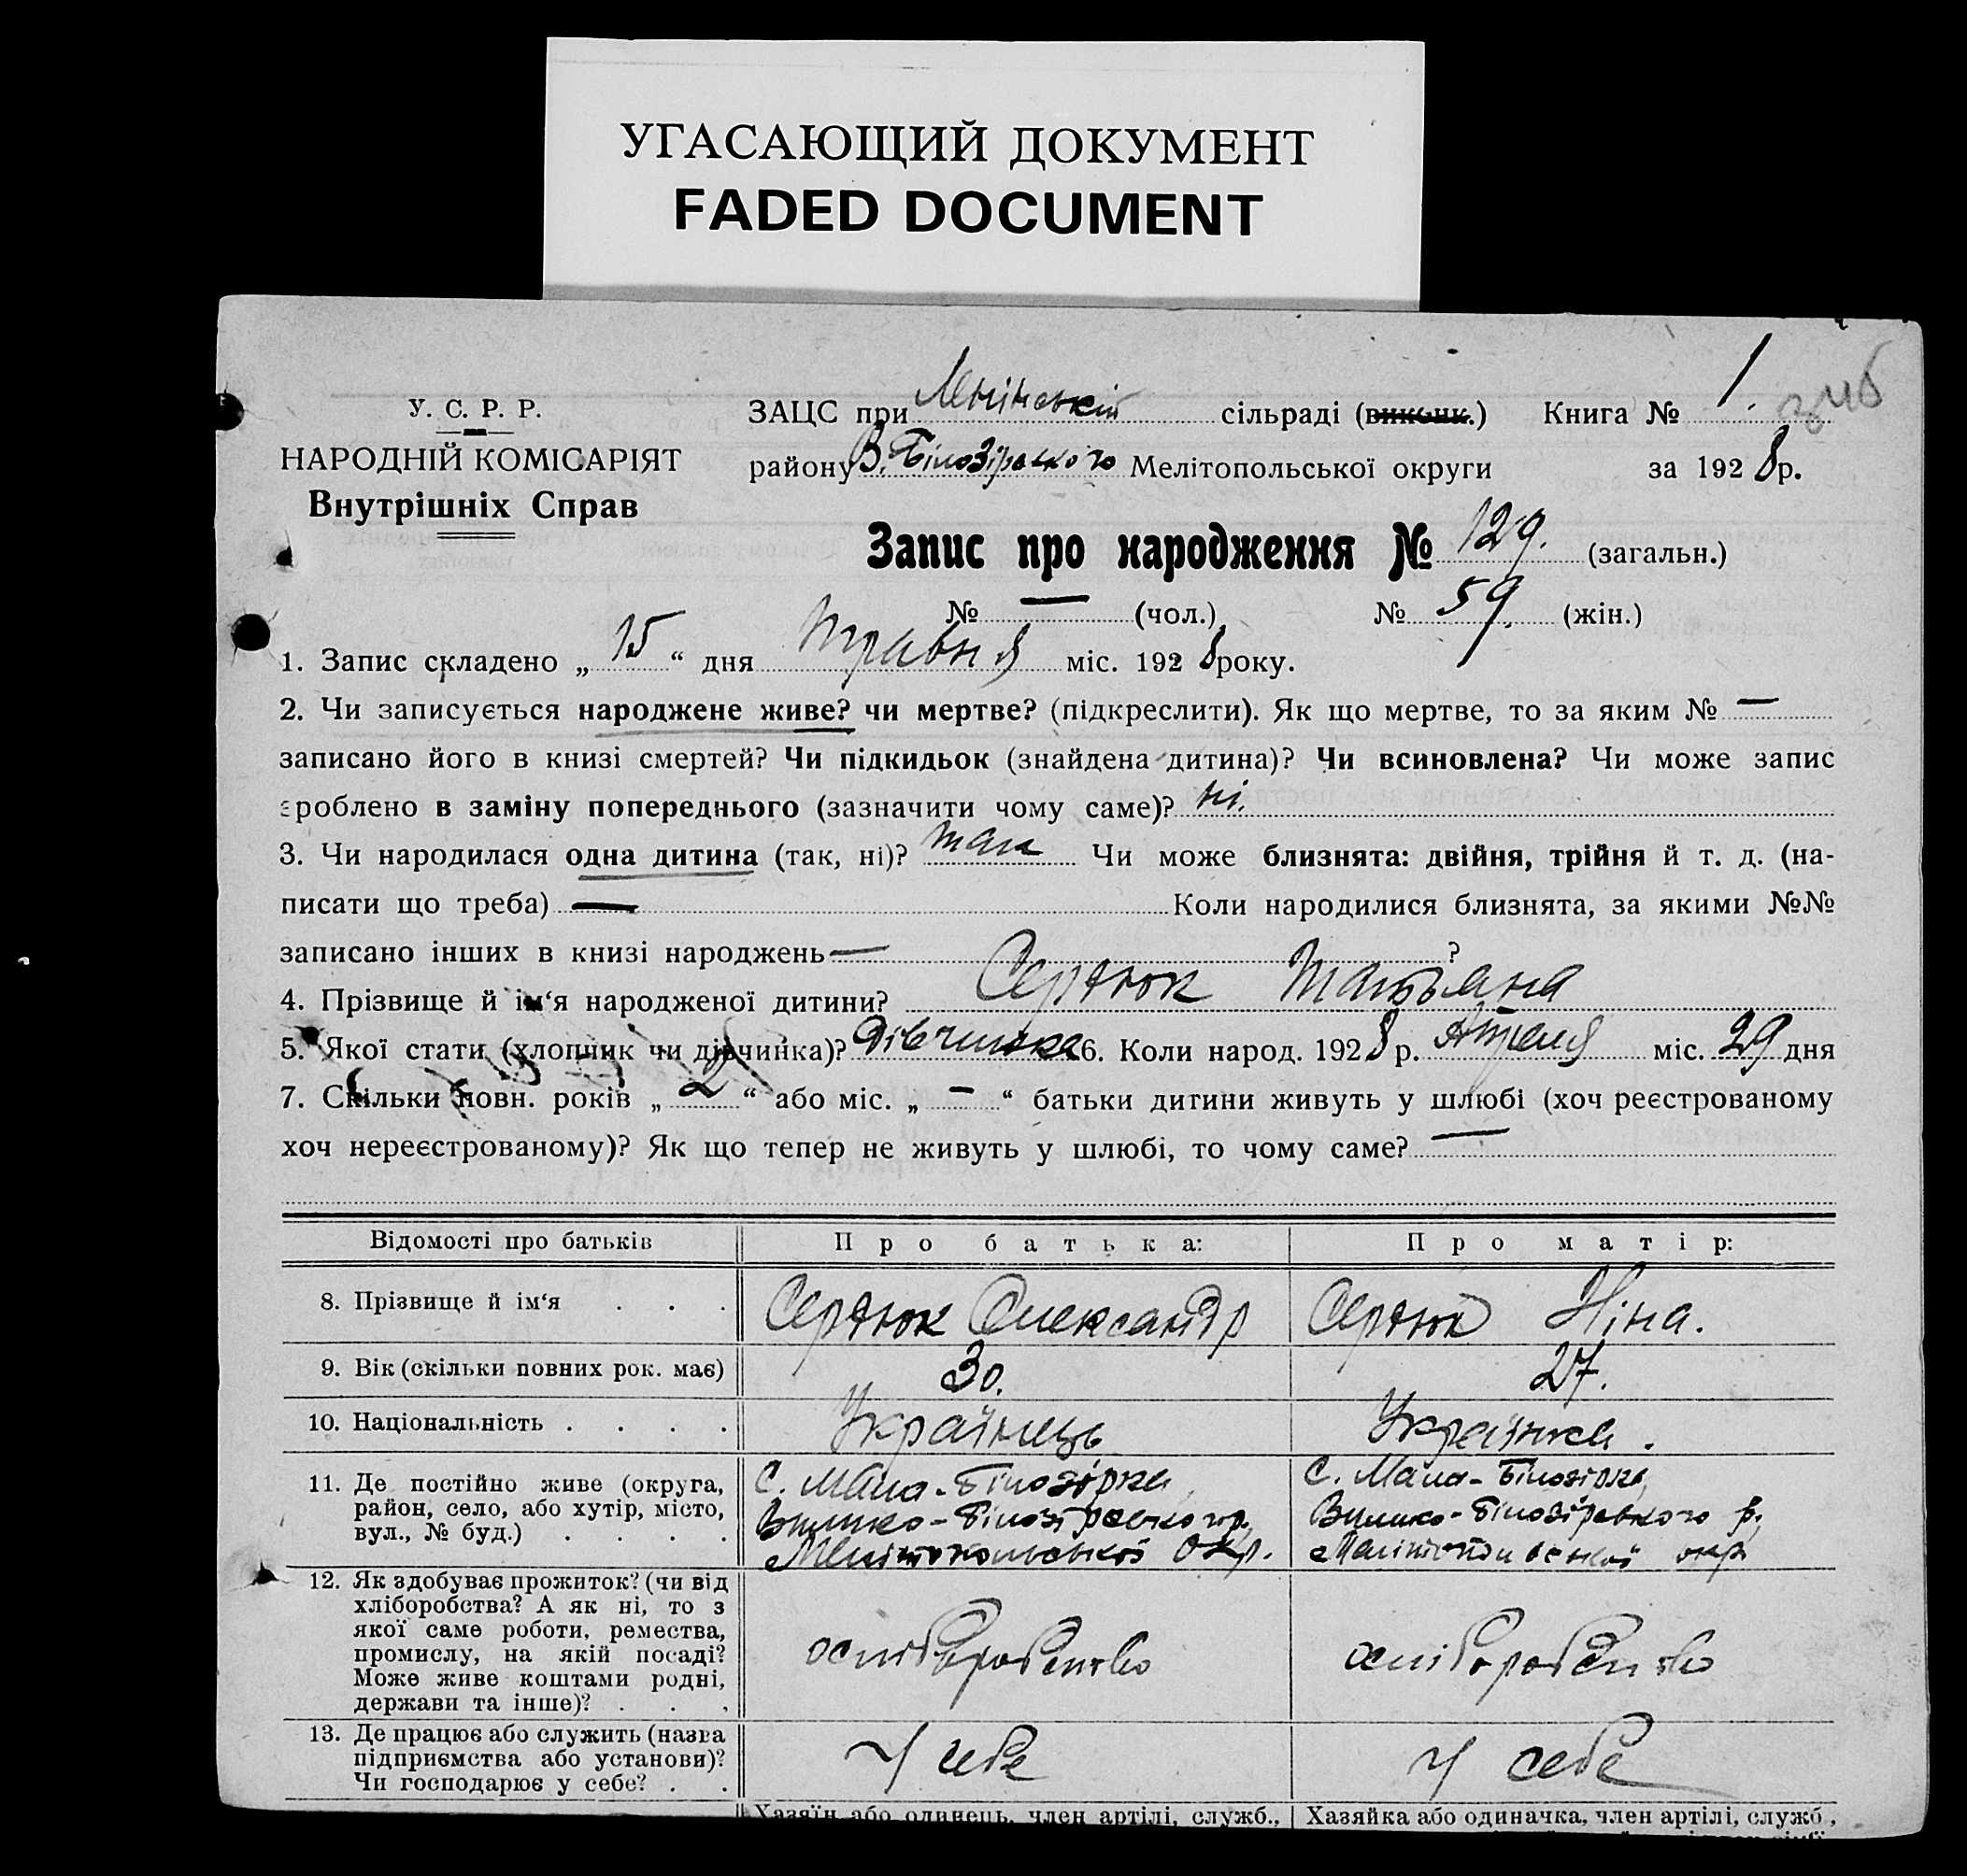 УГАСАЮЩИЙ ДОКУМЕНТ
FADED DOCUMENT
У. С. Р. Р.
НАРОДНІЙ КОМІСАРІЯТ
Внутрішніх Справ
ЗАЦС при сільраді (виконк.) Книга № 1.
району В. Білозірського Мелітопольської округи за 1928 р.
Запис про народження № 129. (загальн.)
№ — (чол.) № 59. (жін.)
1. Запис складено „ 15 “ дня травня міс. 1928 року.
2. Чи записується народжене живе? чи мертве? (підкреслити). Як що мертве, то за яким № —
записано його в книзі смертей? Чи підкидьок (знайдена дитина)? Чи всиновлена? Чи може запис
зроблено в заміну попереднього (зазначити чому саме)? ні.
3. Чи народилася одна дитина (так, ні)? так Чи може близнята: двійня, трійня й т. д. (на-
писати що треба) — Коли народилися близнята, за якими №№
записано інших в книзі народжень — ?
4. Прізвище й ім‘я народженої дитини? Сердюк Татьяна
5. Якої стати (хлопчик чи дівчинка)? дівчинка 6. Коли народ. 1928 р. Апреля міс. 29 дня
7. Скільки повн. років „ 2 “ або міс. „ — “ батьки дитини живуть у шлюбі (хоч реєстрованому
хоч нереєстрованому)? Як що тепер не живуть у шлюбі, то чому саме? —
Відомості про батьків Про батька: Про матір:
8. Прізвище й ім‘я . . . Сердюк Олександр Сердюк Ніна.
9. Вік (скільки повних рок. має) 30. 27.
10. Національність . . . . Українець Українка.
11. Де постійно живе (округа,
район, село, або хутір, місто,
вул., № буд.) . . . .
С. Мала-Білозірка,
Велико-Білозірського р.,
Мелітопольської окр.
С. Мала-Білозірка,
Велико-Білозірського р.,
Мелітопольської окр.
12. Як здобуває прожиток? (чи від
хліборобства? А як ні, то з
якої саме роботи, ремества,
промислу, на якій посаді?
Може живе коштами родні,
держави та інше)? . . .
хліборобство хліборобство
13. Де працює або служить (назва
підприємства або установи)?
Чи господарює у себе? . .
У себе У себе
Хазяїн або одинець, член артілі, служб., Хазяйка або одиначка, член артілі, служб.,